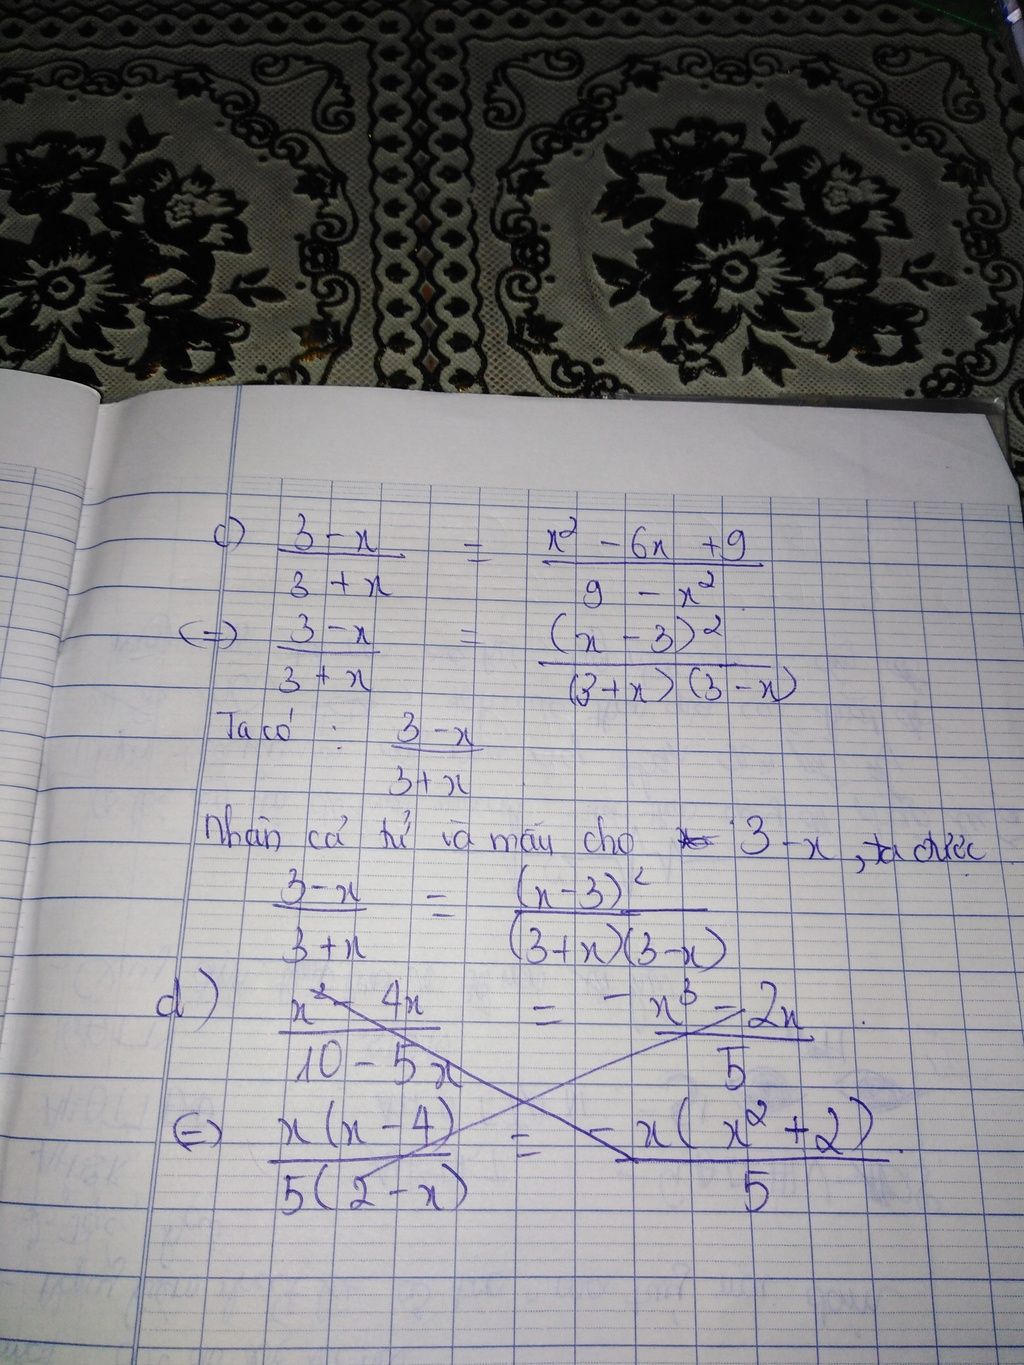 c) (3 - x)/(3 + x) = (x² - 6x + 9)/(9 - x²)
(=) (3 - x)/(3 + x) = (x - 3)²/((3 + x)(3 - x))
Ta có : (3 - x)/(3 + x)
Nhân cả tử và mẫu cho 3 - x, ta được
(3 - x)/(3 + x) = (x - 3)²/((3 + x)(3 - x))
d) (x³ - 4x)/(10 - 5x) = - (x³ - 2x)/5
(=) x(x - 4)/(5(2 - x)) = - x(x² + 2)/5